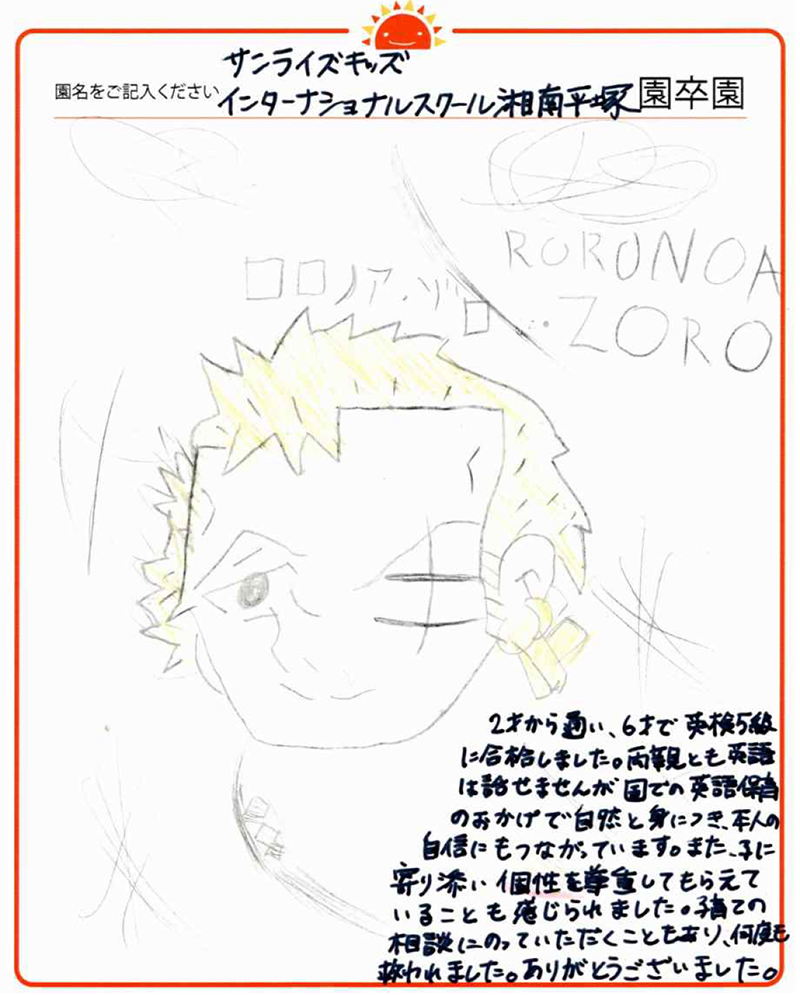 サンライズキッズ
園名をご記入ください インターナショナルスクール湘南平塚 園卒園
RORONOA
ロロノア・ゾロ
ZORO
2才から通い、6才で英検5級
に合格しました。両親とも英語
は話せませんが園での英語保育
のおかげで自然と身につき、本人の
自信にもつながっています。また、子に
寄り添い個性を尊重してもらえて
いることも感じられました。子育ての
相談にのっていただくこともあり、何度も
救われました。ありがとうございました。